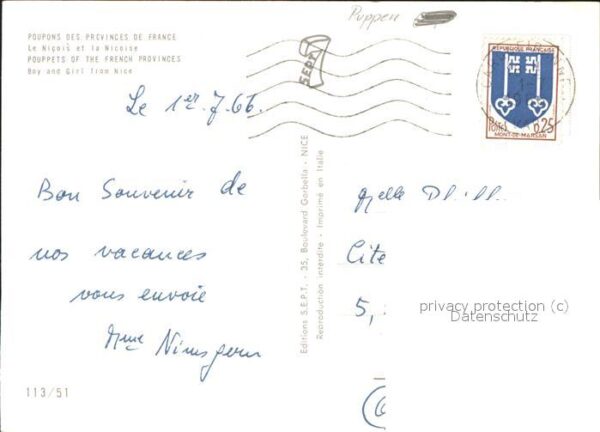 POUPONS DES PROVINCES DE FRANCE
Le Niçois et la Niçoise
POUPPETS OF THE FRENCH PROVINCES
Boy and Girl from Nice
Puppen
S.E.P.T
RÉPUBLIQUE FRANÇAISE
Postes 0,25
MONT-DE-MARSAN
Le 1er.7.66.
Bon Souvenir de
nos vacances
vous envoie
Mme
113/51
Editions S.E.P.T. - 35, Boulevard Gorbella - NICE
Reproduction interdite - Imprimé en Italie
Cite
5,
privacy protection (c)
Datenschutz